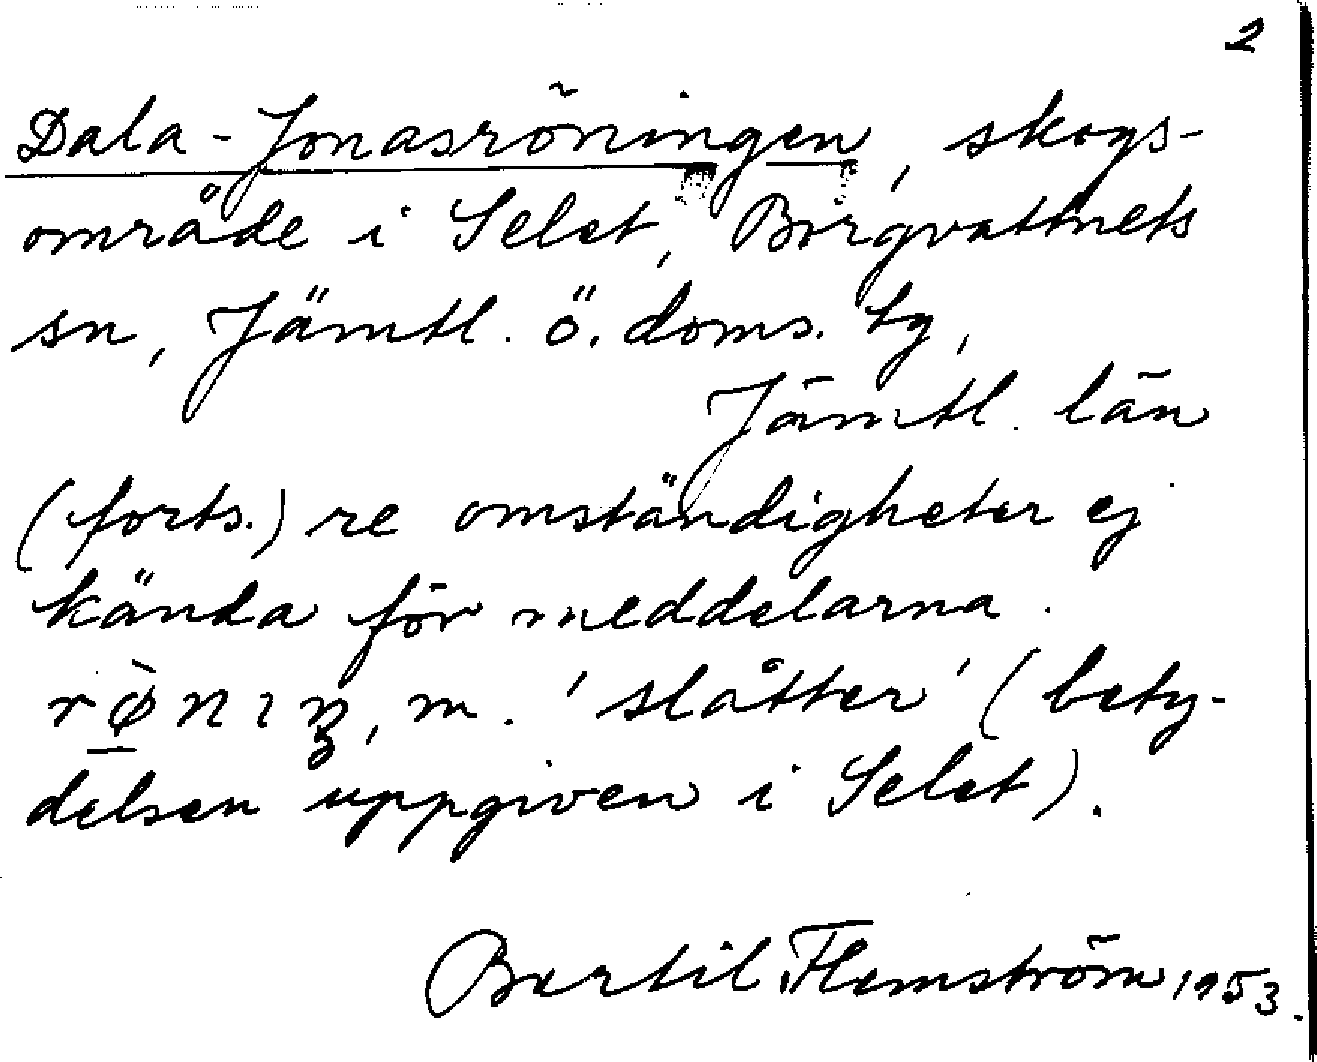 2
Dala-Jonasröningen, skogs-
område i Selet, Borgvattnets
sn, Jämtl. ö. doms. tg,
Jämtl. län
(forts.) re omständigheter ej
kända för meddelarna.
m. 'slåtter' (bety-
delsen uppgiven i Selet).
Bertil Flemström 1953.